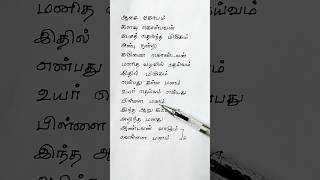 ஆசை கோபம்
களவு கொள்பவன்
பேசத் தெரிந்த மிருகம்
அன்பு நன்றி
கருணை கொண்டவன்
மனித வடிவில் தெய்வம்
இதில் மிருகம்
என்பது கள்ள மனம்
உயர் தெய்வம் என்பது
பிள்ளை மனம்
இந்த ஆறு
அறிந்த மனது
ஆண்டவன் வாழும்
வெள்ளை மனம்